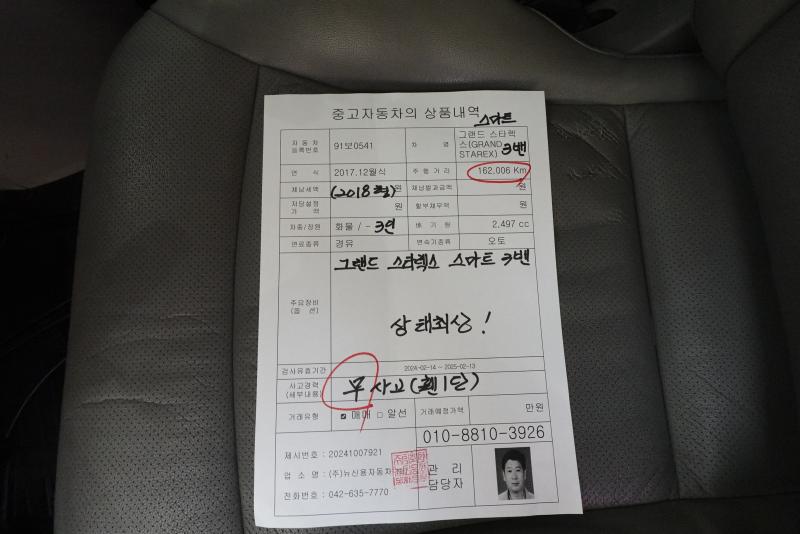 중고자동차의 상품내역
스마트
자동차 등록번호 91보0541 차 명 그랜드 스타렉스(GRAND STAREX) 3밴
연 식 2017.12월식 주 행 거 리 162,006 Km
체납세액 (2018형) 원 체납범과금액 원
저당설정 가 액 원 할부채무액 원
차종/정원 화물 / - 3인 배 기 량 2,497 cc
연료종류 경유 변속기종류 오토
그랜드 스타렉스 스마트 3밴
주요장비 (옵 션)
상태최상!
검사유효기간 2024-02-14 ~ 2025-02-13
사고경력 (세부내용) 무사고(휀1단)
거래유형 ☑ 매매 □ 알선 거래예정가액 만원
010-8810-3926
제시번호 : 20241007921
업 소 명 : (주)뉴신용자동차 관 리
담당자
전화번호 : 042-635-7770